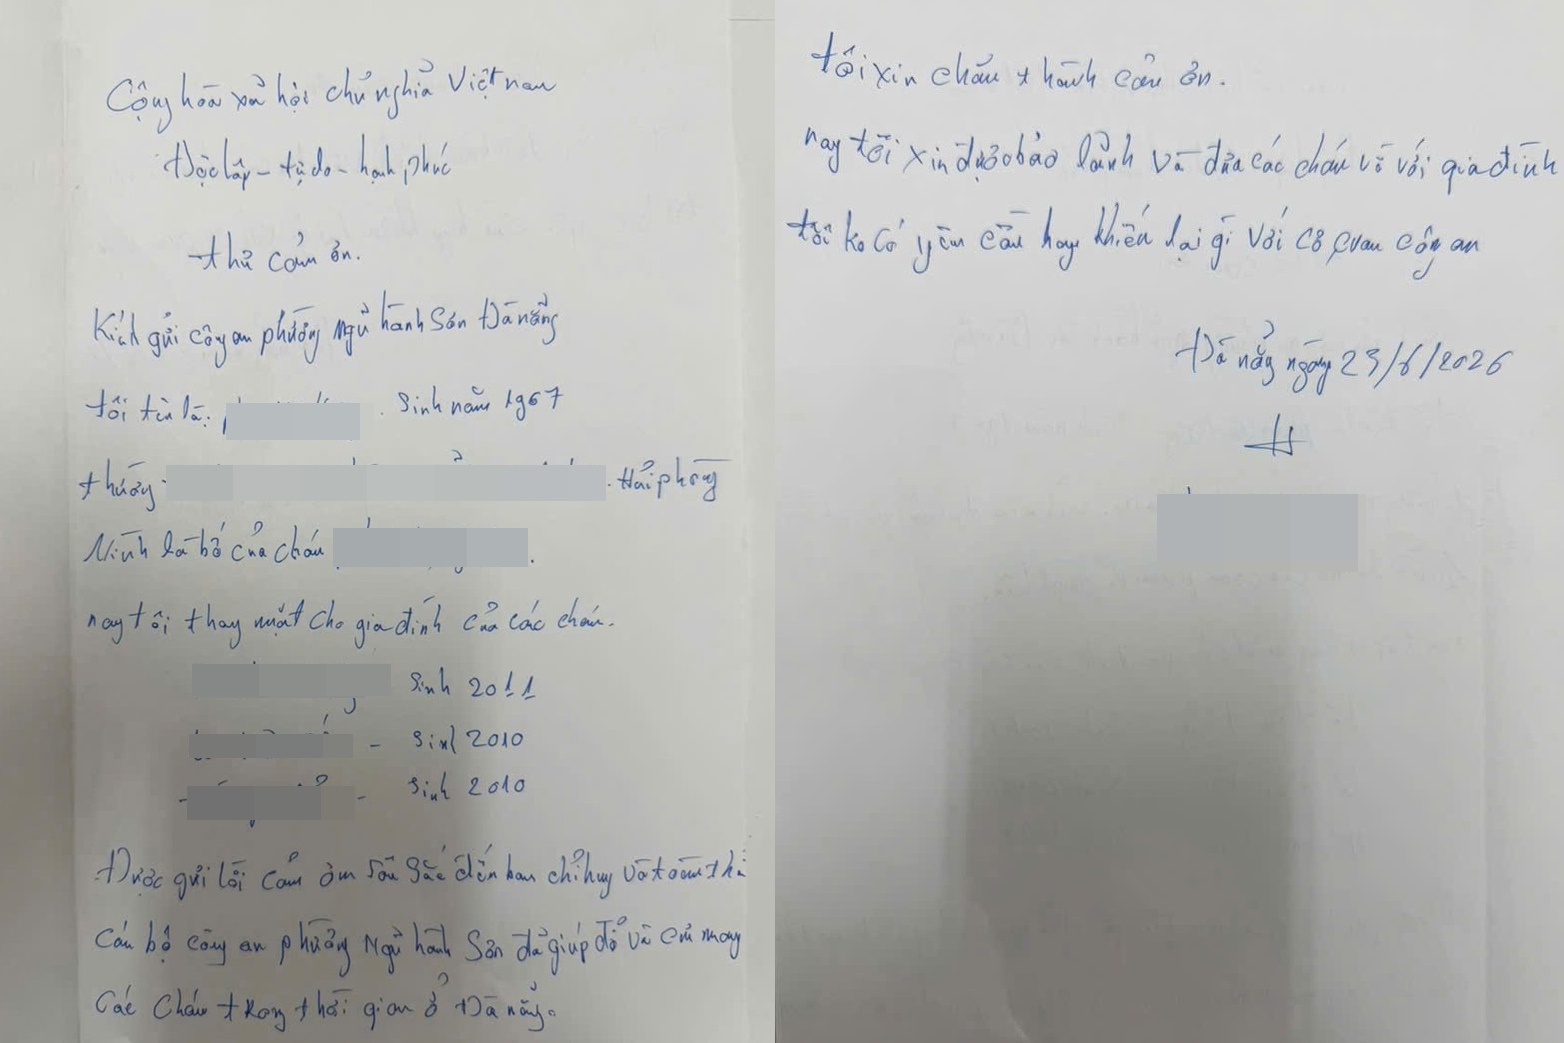 Cộng hòa xả hội chủ nghiả Việt nam
Độc lập - tự do - hạnh phúc
thử cảm ởn.
Kính gửi công an phường Ngủ hành Sơn Đà nẵng
tôi tên là: . Sinh năm 1967
thường . Hải phòng
Mình là bố của cháu .
nay tôi thay mặt cho gia đình của các cháu.
Sinh 2011
- Sinh 2010
- Sinh 2010
Được gửi lời cảm ởn sâu sắc đến ban chỉ huy và toàn thể
cán bộ công an phường Ngủ hành Sơn đả giúp đở và cưu mang
các cháu trong thời gian ở Đà nẵng.
tôi xin chân thành cảm ởn.
nay tôi xin được bảo lảnh và đưa các cháu về với gia đình
tôi ko có yêu cầu hay khiếu lại gì với cơ quan công an
Đà nẳng ngày 23/6/2026